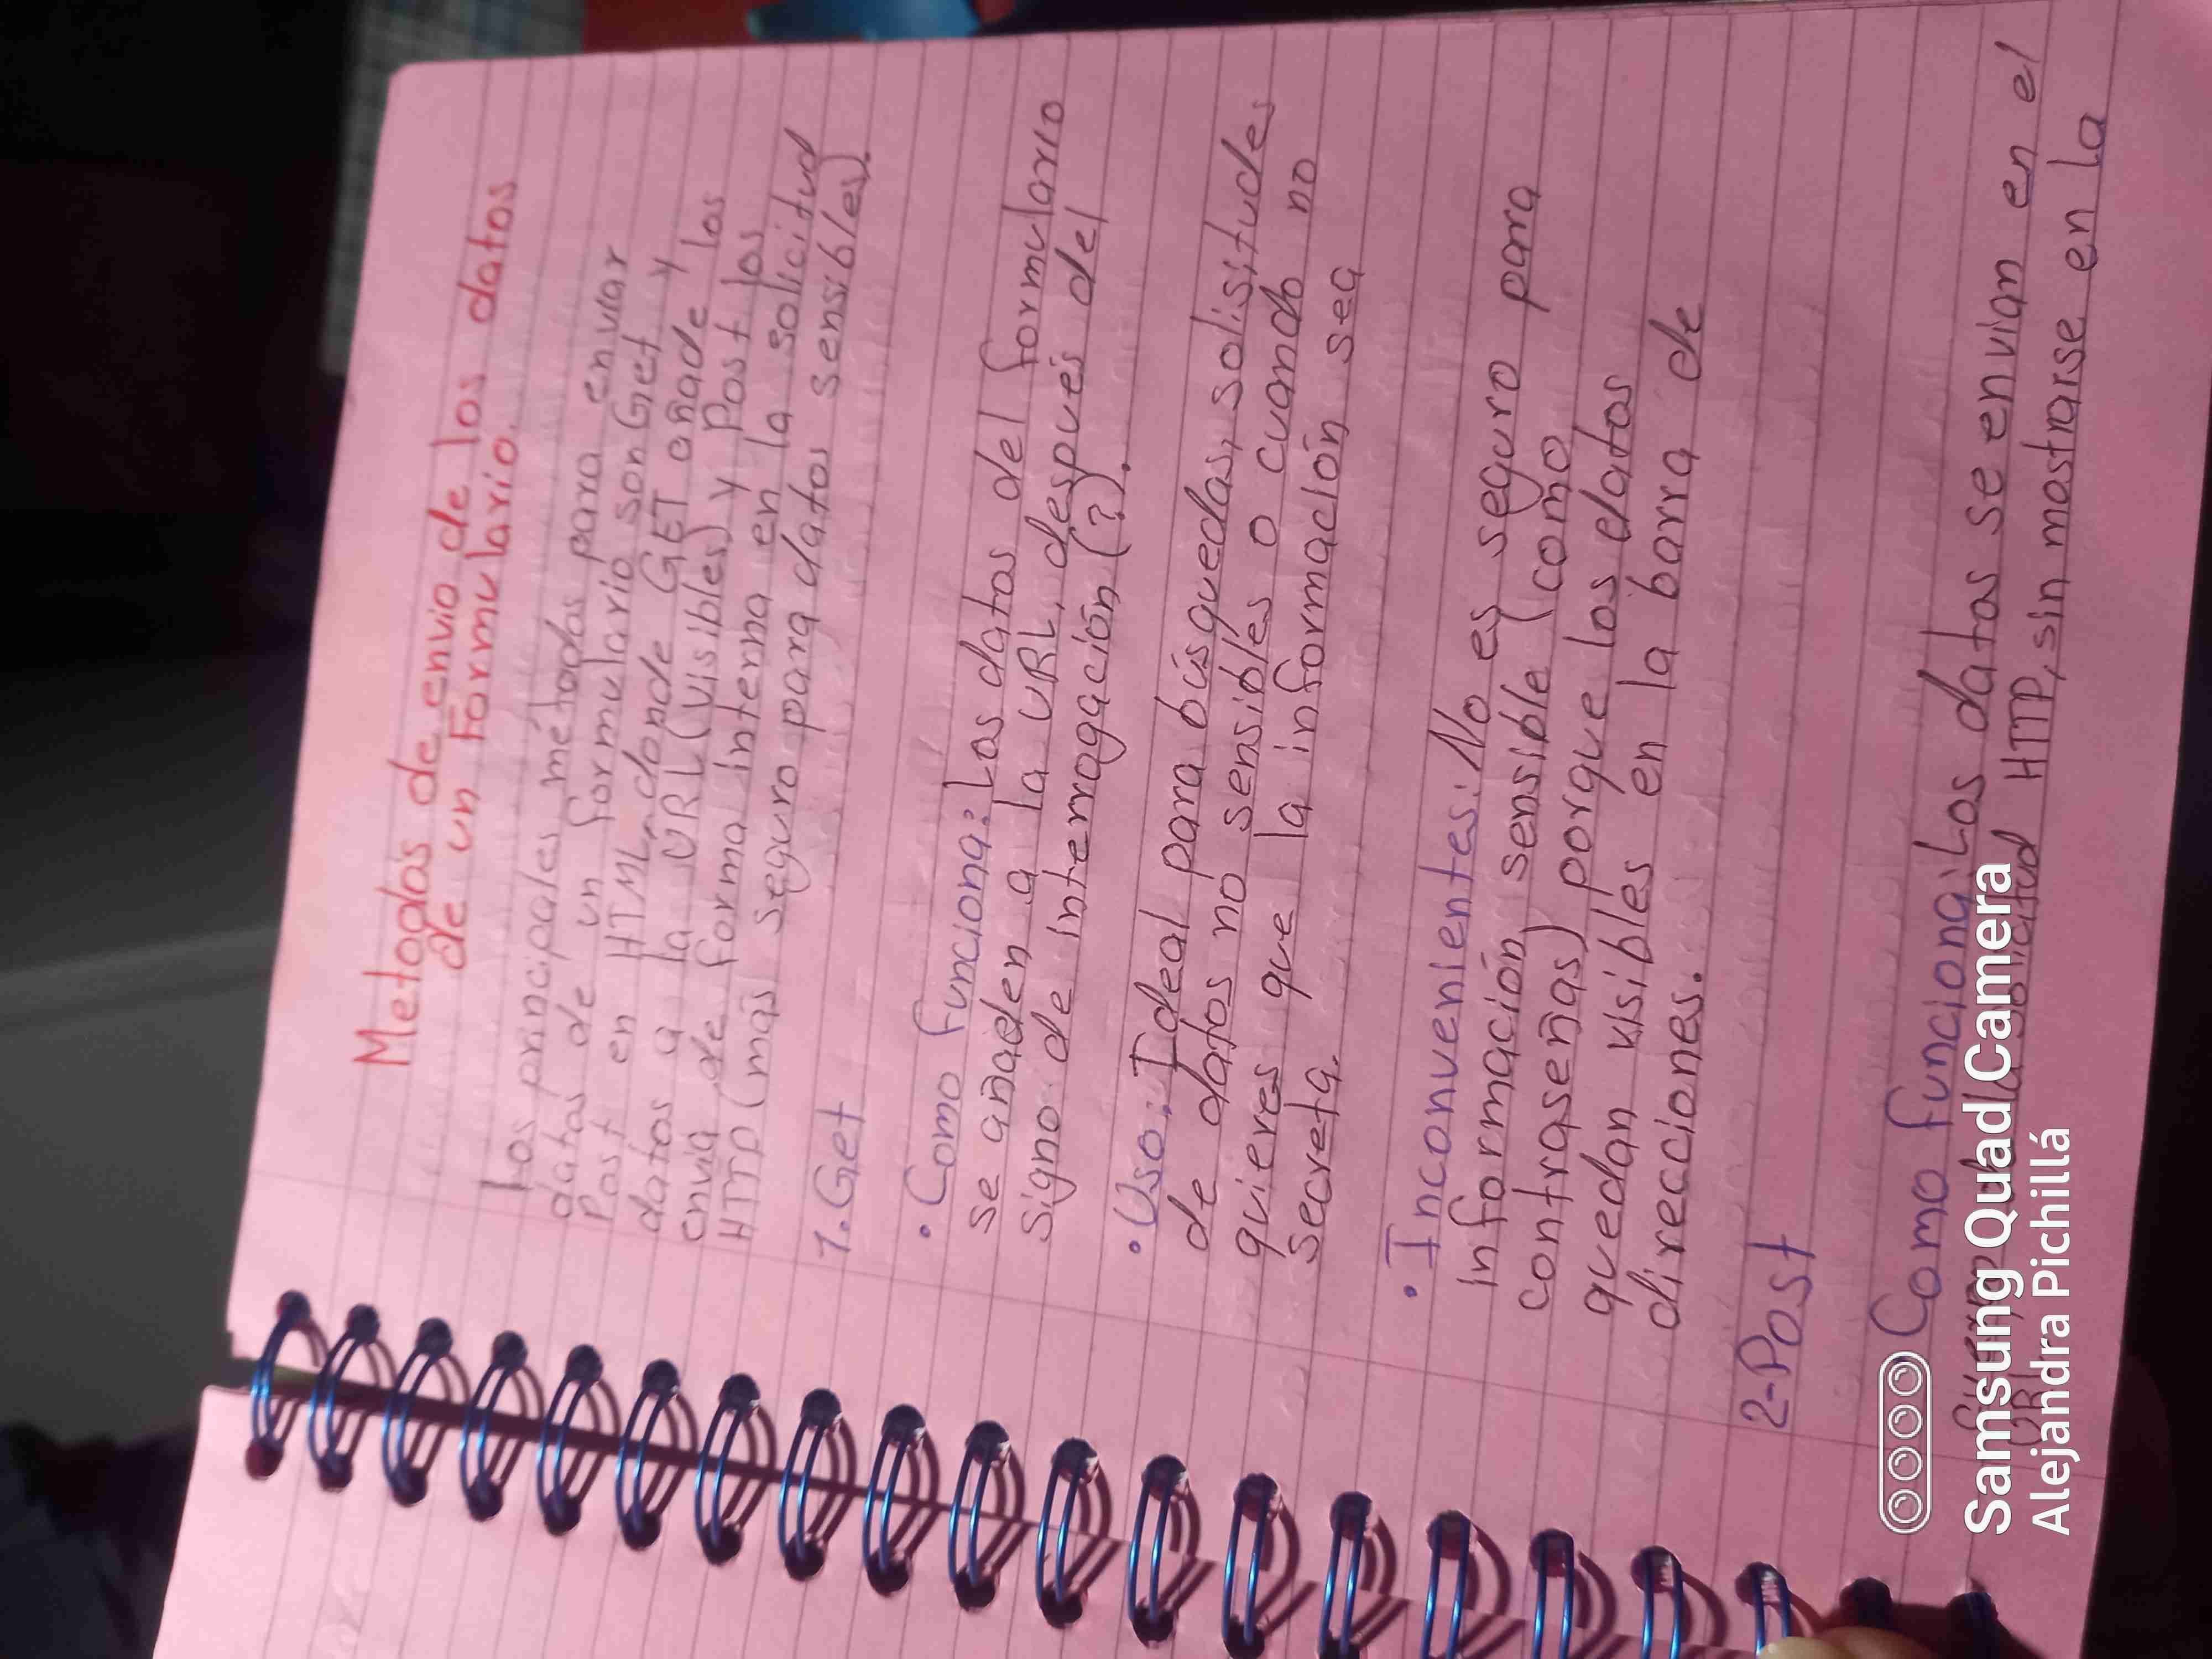 Metodos de envio de los datos
de un Formulario.
Los principales métodos para enviar
datos de un formulario son Get y
Post en HTML donde GET añade los
datos a la URL (visibles) y Post los
envia de forma interna en la solicitud
HTTP (más seguro para datos sensibles).
1. Get
• Como funciona: Los datos del formulario
se añaden a la URL, después del
signo de interrogación (?).
• Uso: Ideal para búsquedas, solisitudes
de datos no sensibles o cuando no
quieres que la información sea
secreta.
• Inconvenientes: No es seguro para
información sensible (como
contraseñas) porque los datos
quedan visibles en la barra de
direcciones.
2-Post
• Como funciona: Los datos se envian en el
cuerpo de la solicitud HTTP, sin mostrarse en la
URL
Samsung Quad Camera
Alejandra Pichillá